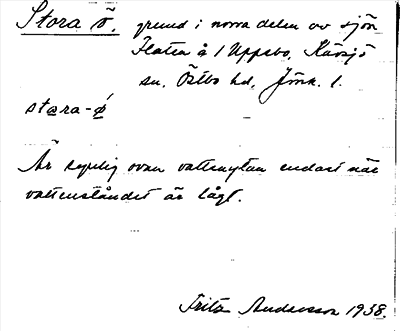 Stora ö. grund i norra delen av sjön
Flaten å 1 Uppebo, Kävsjö
sn, Östbo hd, Jönk. l.
stora-ǿ
Är synlig ovan vattenytan endast när
vattenståndet är lågt.
Fritz Andersson 1938.